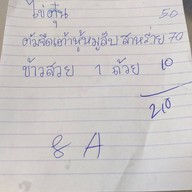 ไข่ตุ๋น 50
ต้มจืดเต้าหู้หมูสับ สาหร่าย 70
ข้าวสวย 1 ถ้วย 10
210
8 A